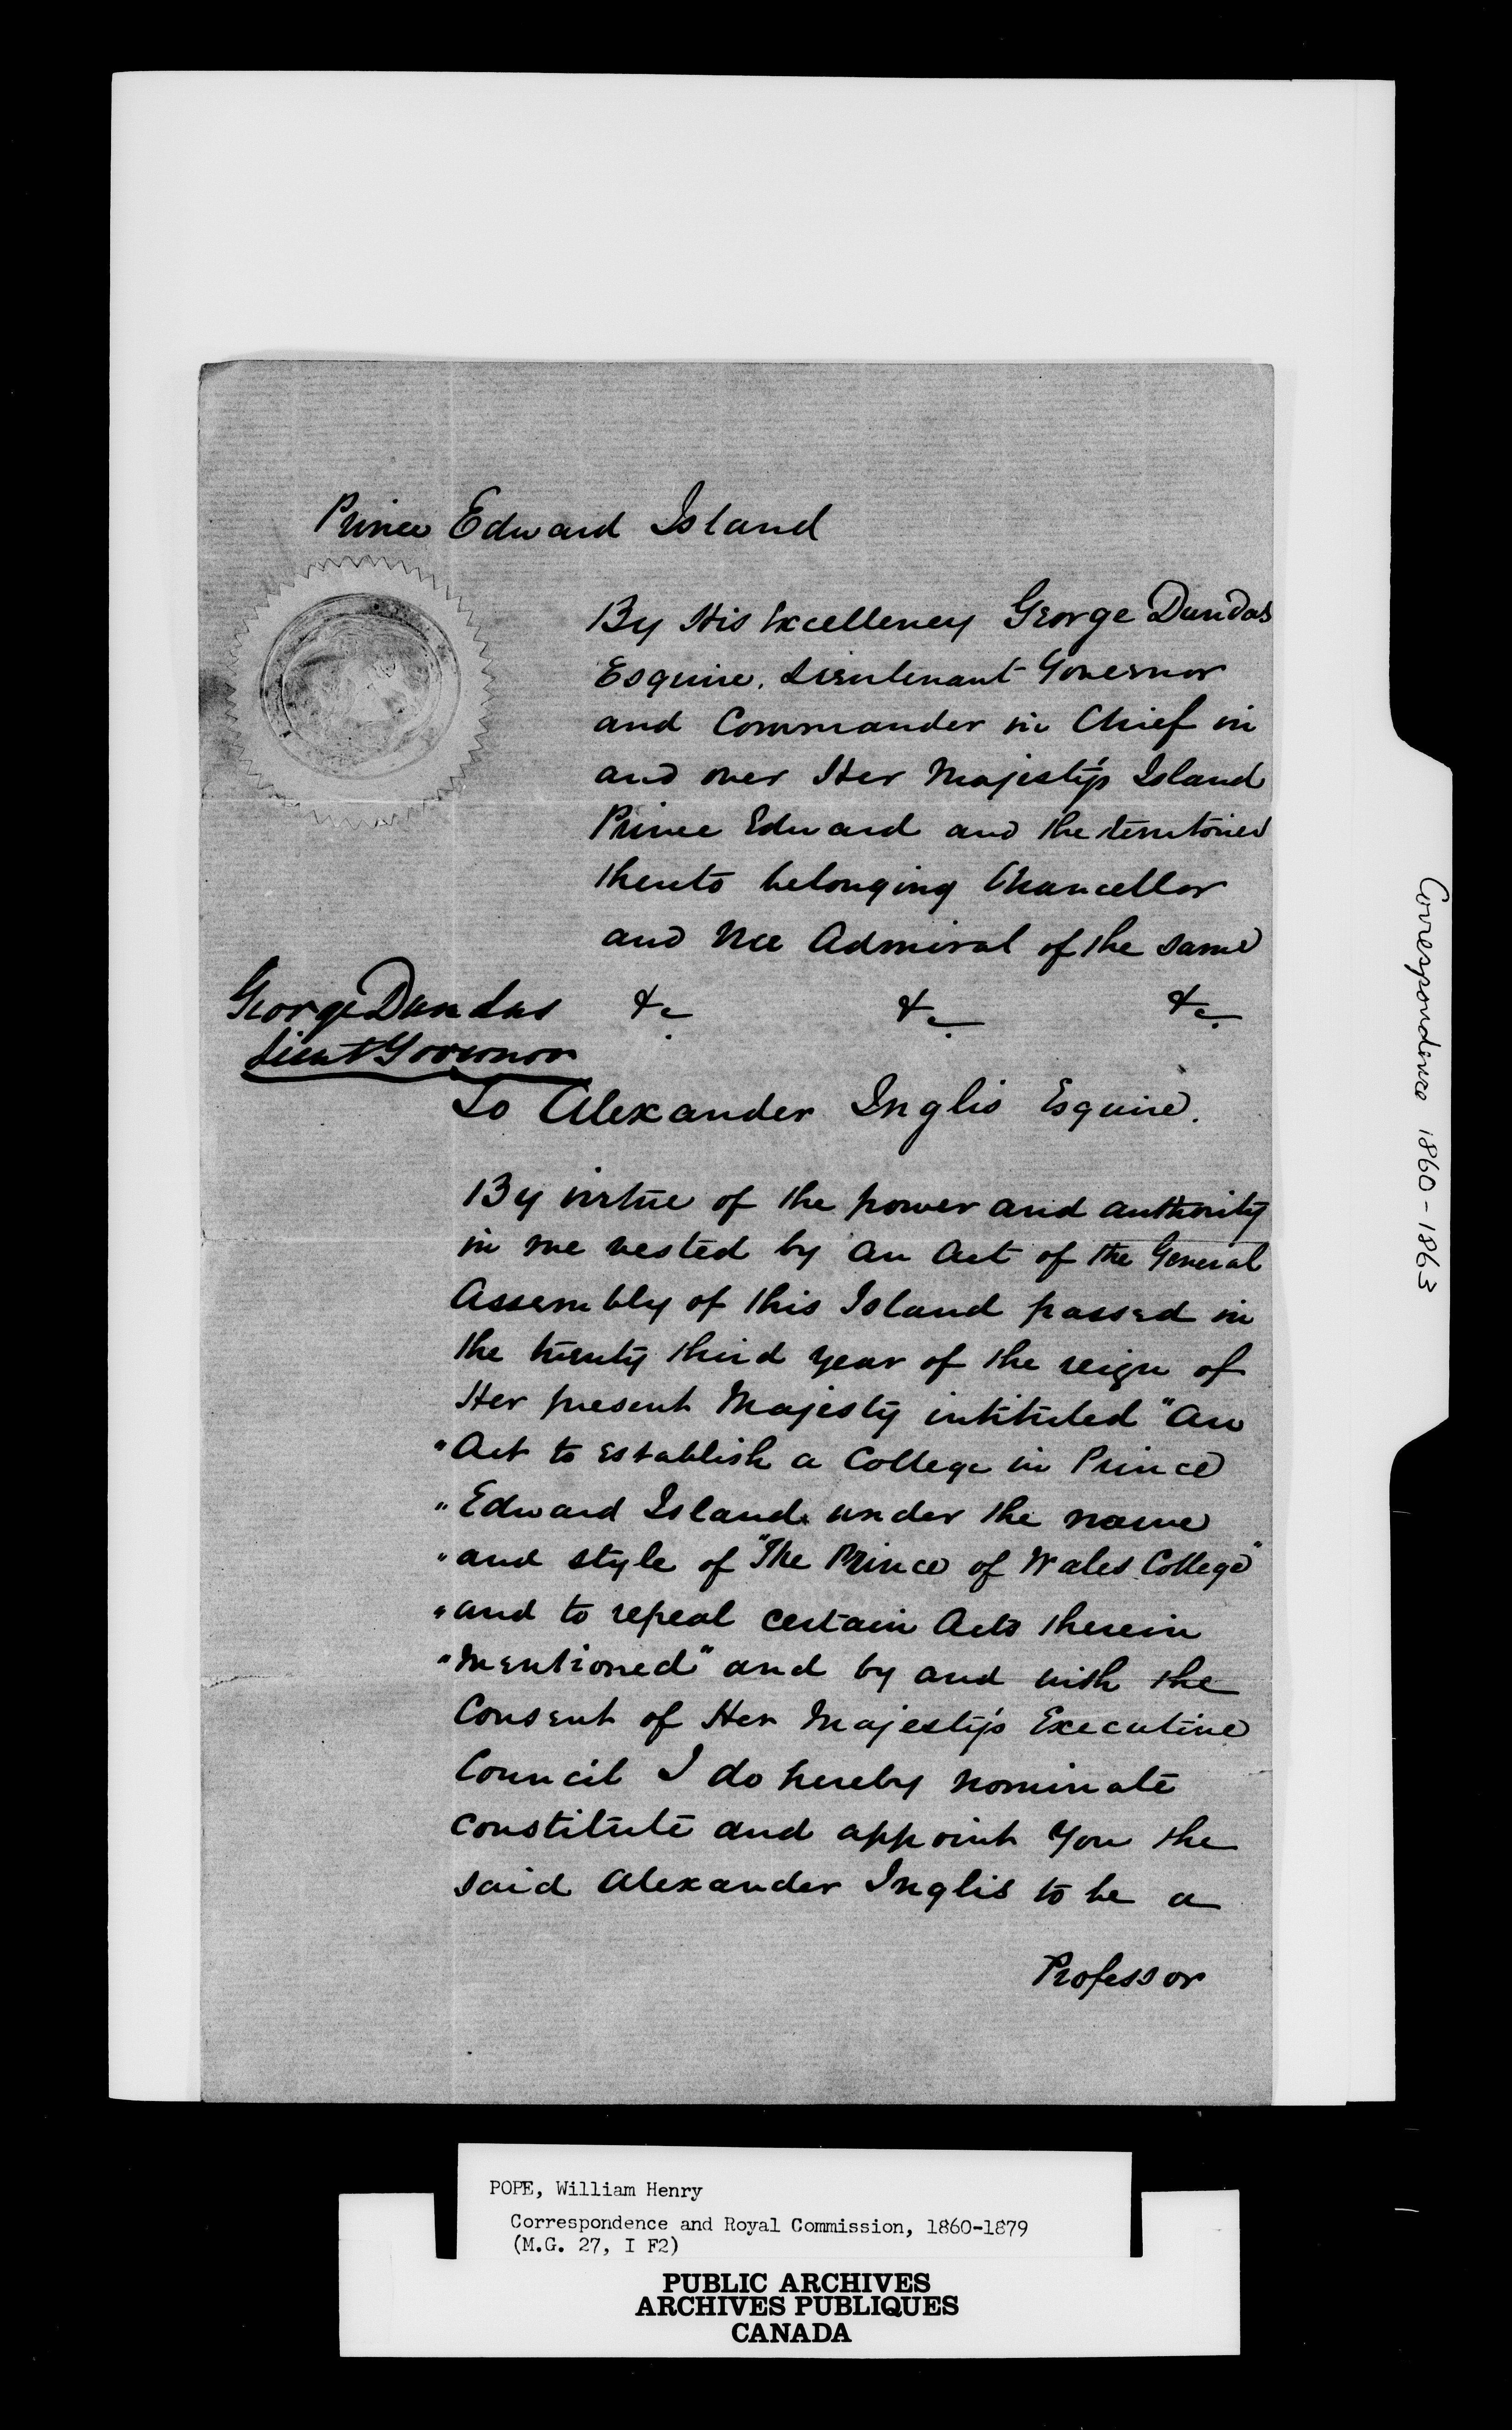 Prince Edward Island
By His Excellency George Dundas
Esquire. Lieutenant Governor
and Commander in Chief in
and over Her Majesty's Island
Prince Edward and the territories
thereto belonging Chancellor
and Vice Admiral of the same
&c &c. &c.
George Dundas
Lieut Governor
To Alexander Inglis Esquire.
By virtue of the power and authority
in me vested by an Act of the General
Assembly of this Island passed in
the twenty third year of the reign of
Her present Majesty intituled "An
"Act to establish a College in Prince
"Edward Island under the name
"and style of "The Prince of Wales College"
"and to repeal certain Acts therein
"mentioned" and by and with the
Consent of Her Majesty's Executive
Council I do hereby nominate
constitute and appoint you the
said Alexander Inglis to be a
Professor
Correspondence 1860-1863
POPE, William Henry
Correspondence and Royal Commission, 1860-1879
(M.G. 27, I F2)
PUBLIC ARCHIVES
ARCHIVES PUBLIQUES
CANADA